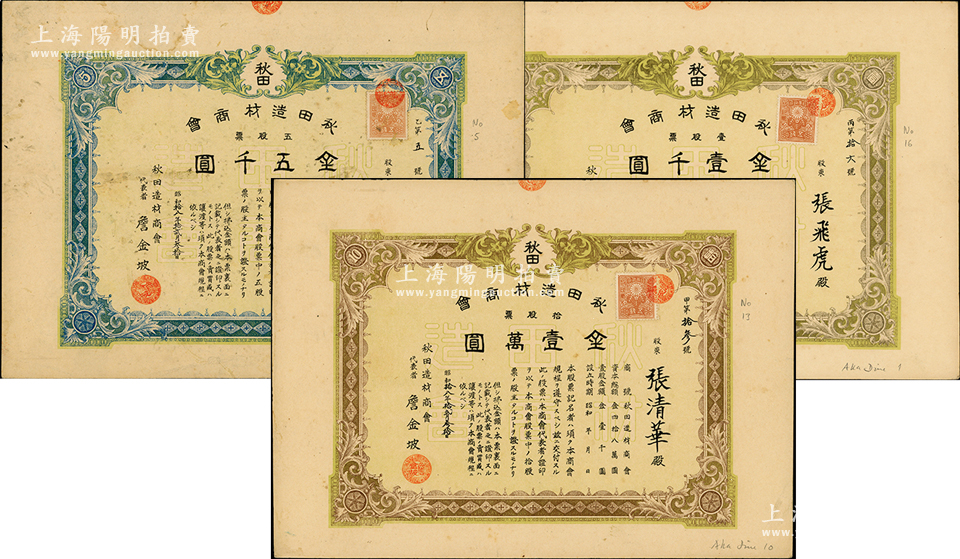 上海陽明拍賣
www.yangmingauction.com
秋田
秋田造材商會
五股票
金五千圓
乙第五號
No 5
股東
リ以テ本商會股票中ノ五股
票ノ股主タルコトヲ證スルモノナリ
但シ拂込金額ハ本票裏面ニ
記載シテ代表者之ニ證印スル
モノトス此ノ股票ノ賣買或ハ
讓渡等ノ項ヲ本商會規程ニ
依ルベシ
秋田造材商會
代表者 詹金坡
秋田
秋田造材商會
壹股票
金壹千圓
丙第拾六號
No 16
股東 張飛虎殿
秋
Aka Jine 1
秋田
秋田造材商會
拾股票
金壹萬圓
甲第拾參號
No 13
股東 張清華殿
商號 秋田造材商會
資本總額 金四拾八萬圓
壹股金額 金壹千圓
設立時期 昭和 年 月 日
本股票記名者ハ項ヲ本商會
規程ヲ遵守スベシ茲ニ交付スル
此ノ股票ハ本商會代表者ノ證印
ヲ以テ本商會股票中ノ拾股
票ノ股主タルコトヲ證スルモノナリ
但シ拂込金額ハ本票裏面ニ
記載シテ代表者之ニ證印スル
モノトス此ノ股票ノ賣買或ハ
讓渡等ノ項ヲ本商會規程ニ
依ルベシ
秋田造材商會
代表者 詹金坡
Aka Jine 10
上海陽明拍賣
www.yangmingauction.com